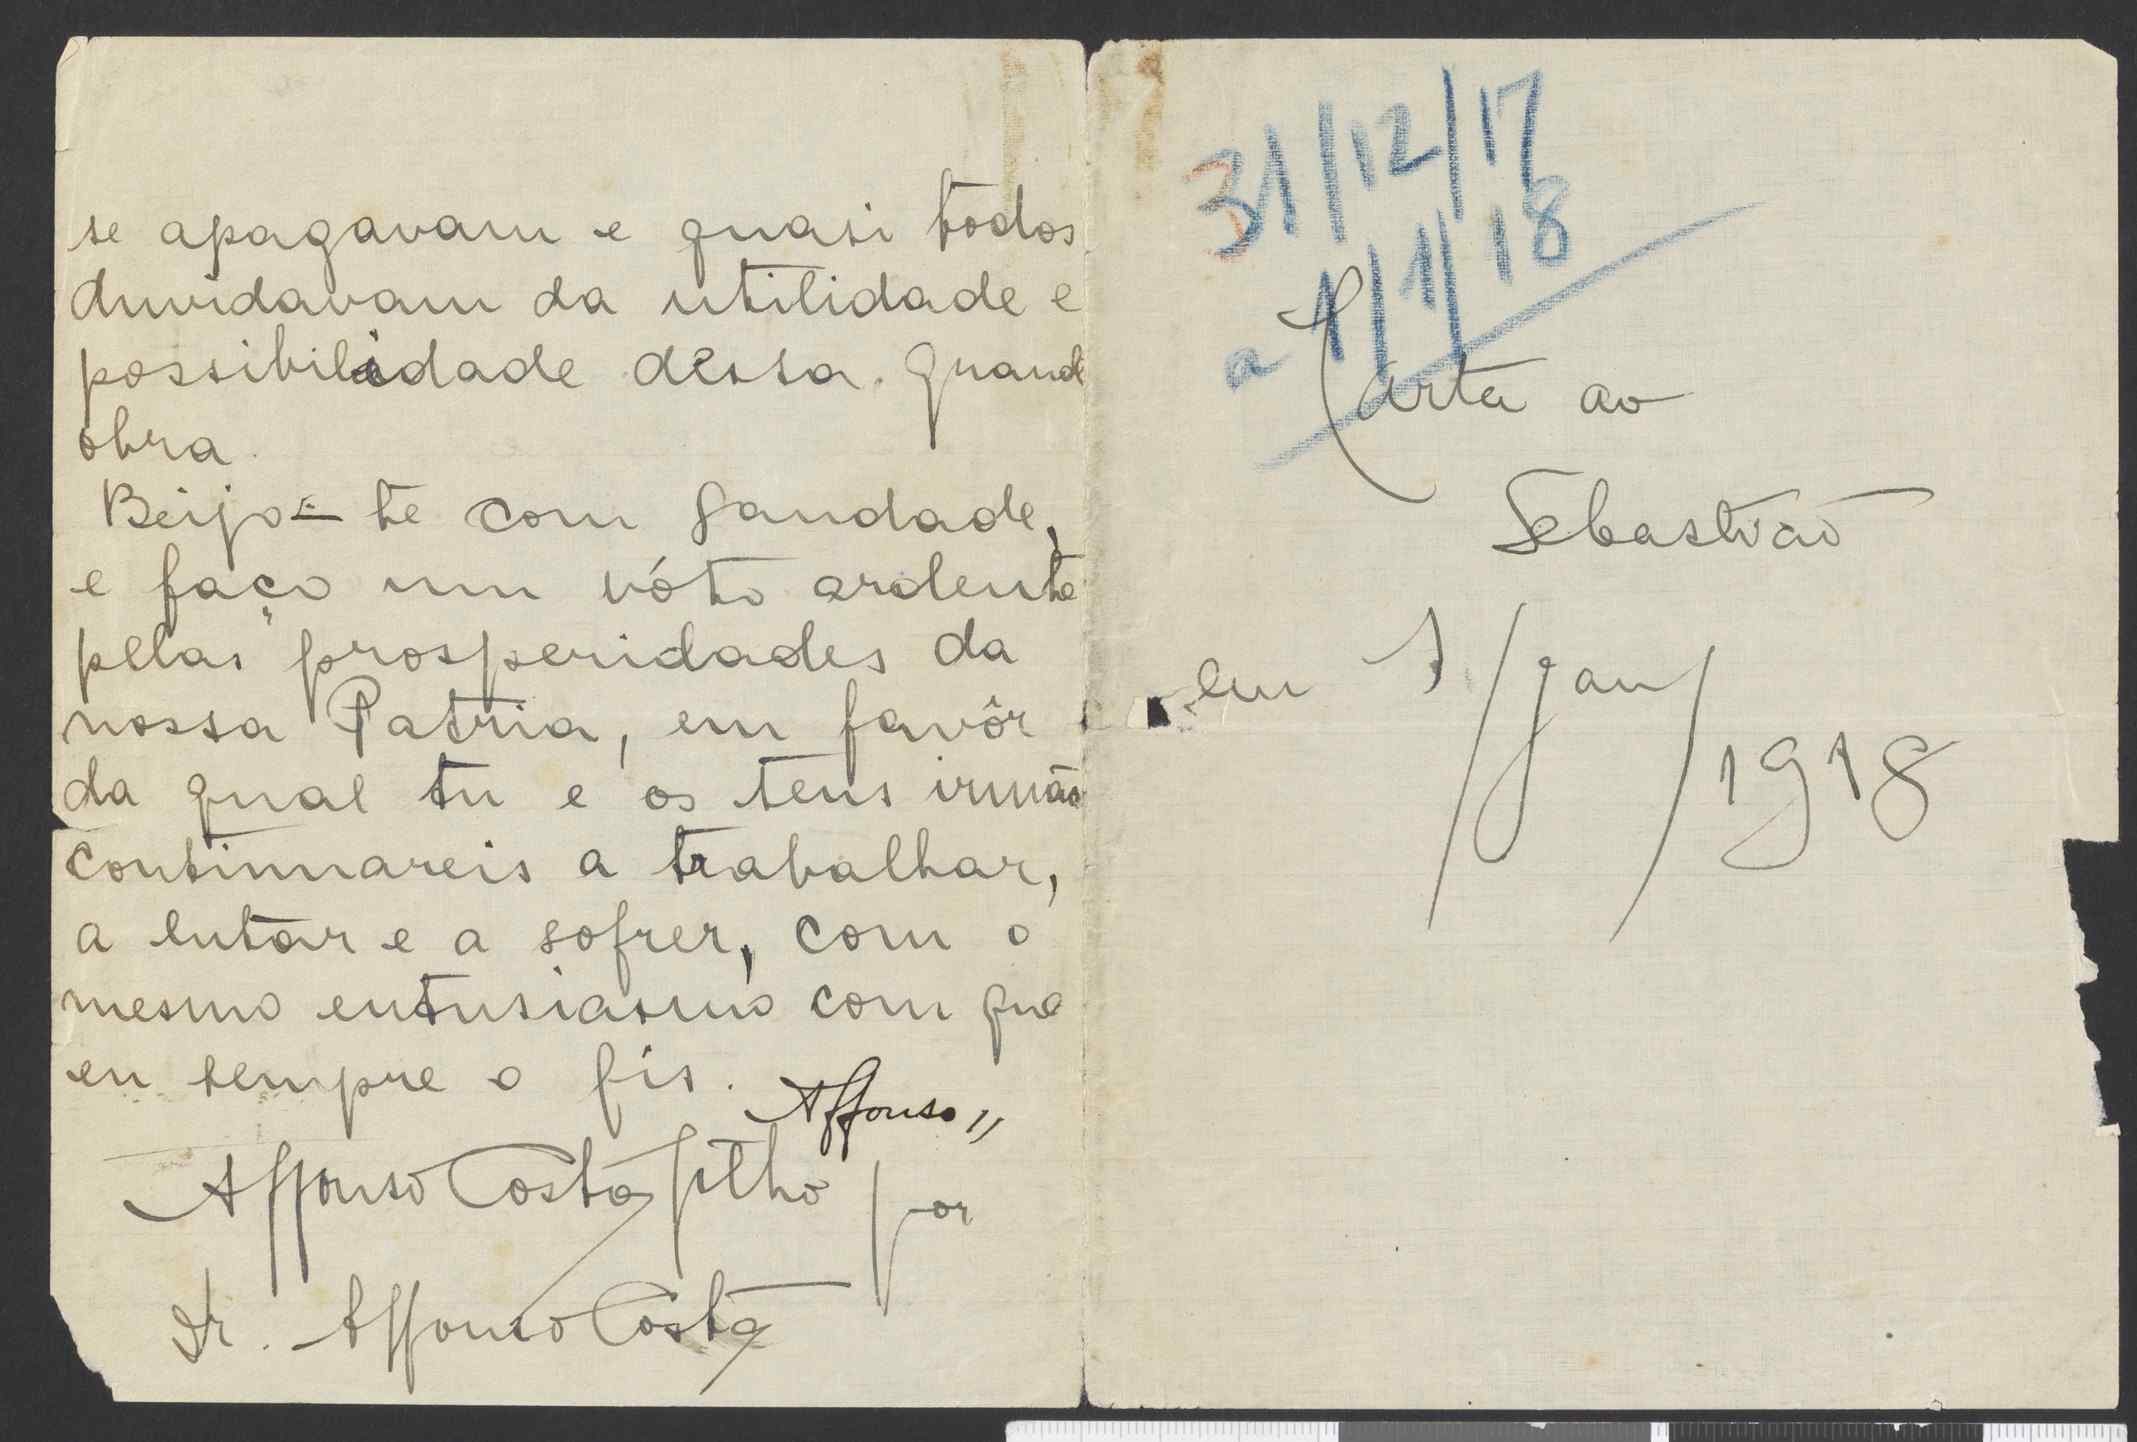 se apagavam e quasi todos
duvidavam da utilidade e
possibilidade dessa grande
obra.
Beijo-te com saudade,
e faço um vóto ardente
pelas prosperidades da
nossa Patria, em favôr
da qual tu e os teus irmãos
continuareis a trabalhar,
a lutar e a sofrer, com o
mesmo entusiasmo com que
eu sempre o fis.
Affonso"
Affonso Costa filho por
Dr. Affonso Costa
31/12/17
a 1/1/18
Carta ao
Sebastião
em 1/jan/1918